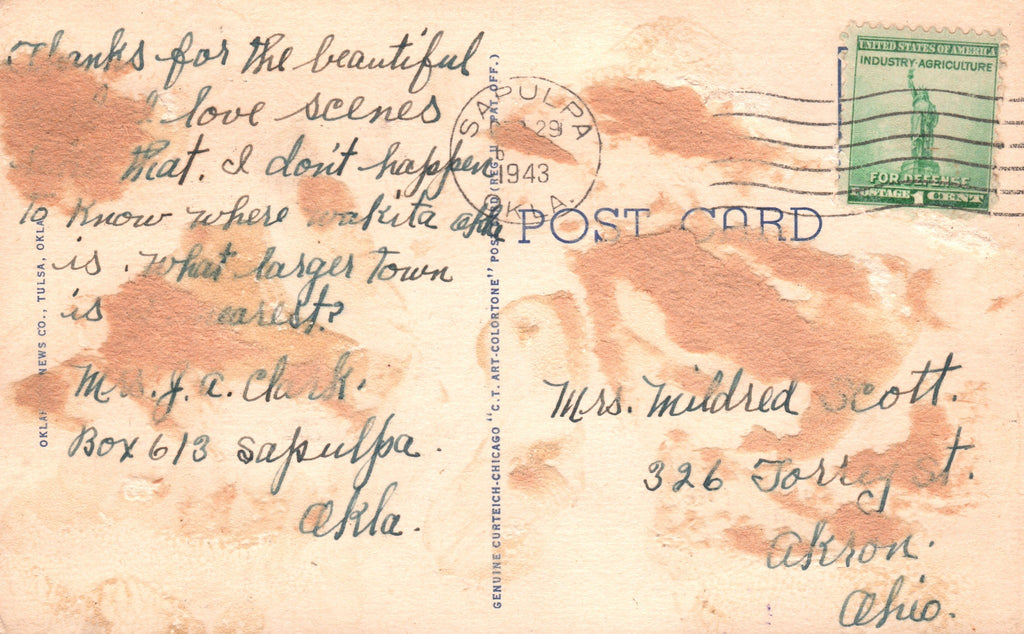 Thanks for the beautiful
I love scenes
that. I don't happen
to know where wakita okla
is. What larger town
is nearest?
Mrs. J. A. Clark.
Box 613 Sapulpa.
Okla.
OKLAHOMA NEWS CO., TULSA, OKLA.
GENUINE CURTEICH-CHICAGO "C.T. ART-COLORTONE" POST CARD (REG. U.S. PAT. OFF.)
SAPULPA
29
1943
OKLA.
UNITED STATES OF AMERICA
INDUSTRY-AGRICULTURE
FOR DEFENSE
POSTAGE 1 CENT
POST CARD
Mrs. Mildred Scott.
326 Torrey St.
Akron.
Ohio.